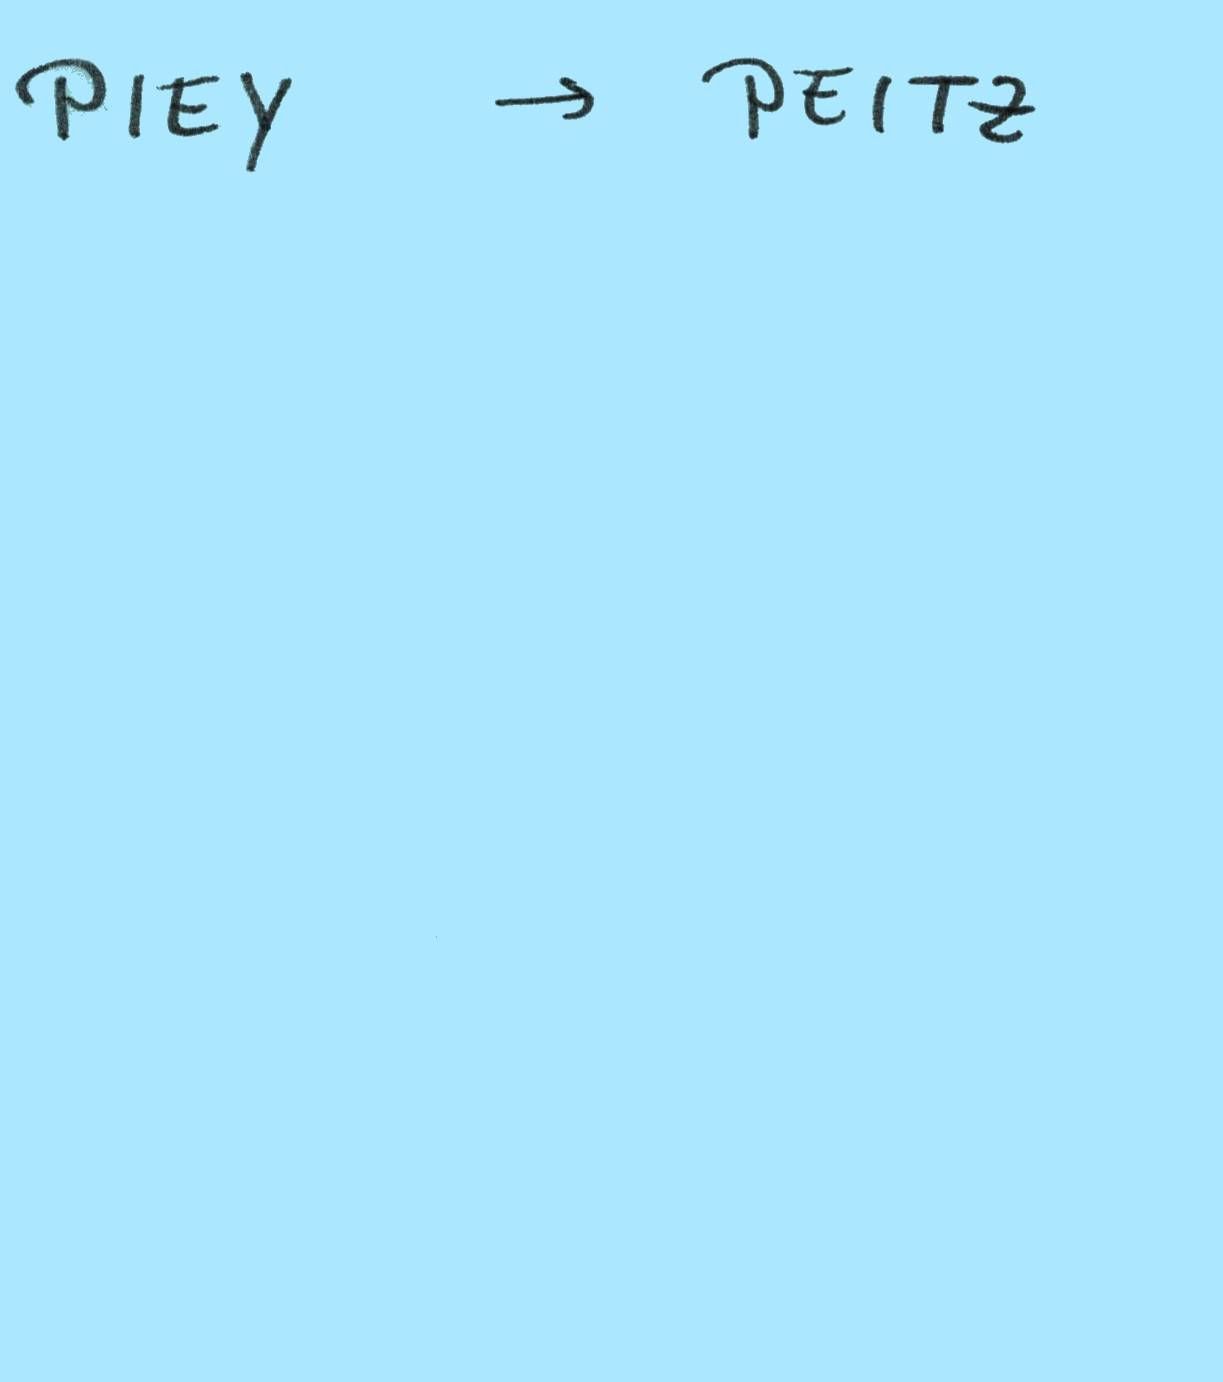 PIEY → PEITZ